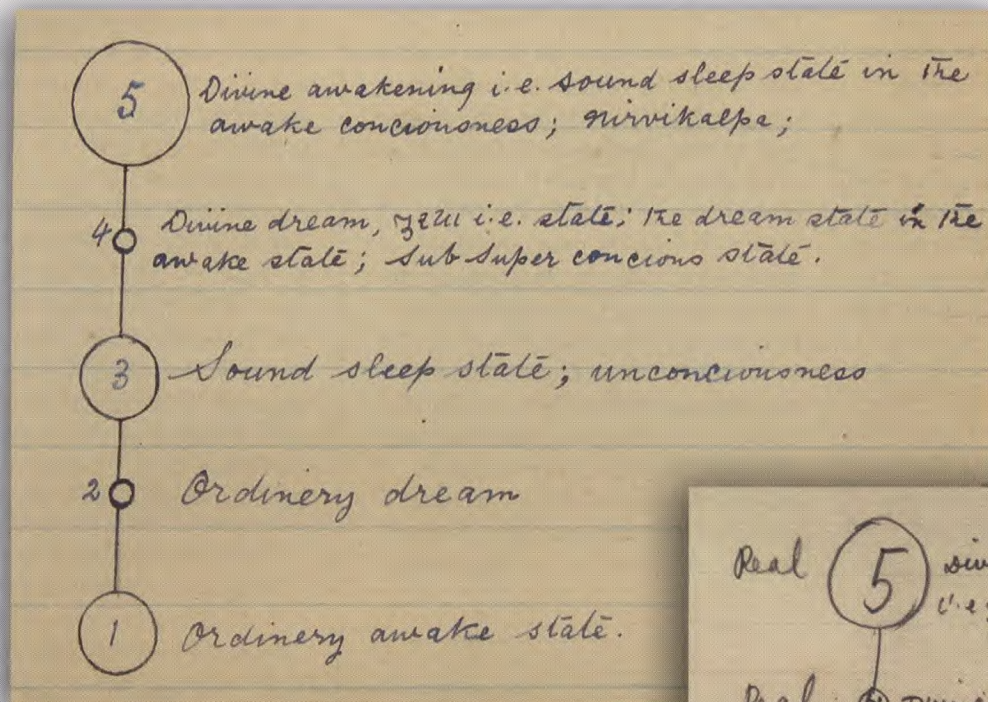 5
Divine awakening i.e. sound sleep state in the
awake conciousness; nirvikalpa;
4
Divine dream, i.e. state; the dream state in the
awake state; sub super concious state.
3
Sound sleep state; unconciousness
2
Ordinery dream
1
Ordinery awake state.
Real 5
i.e.
Real